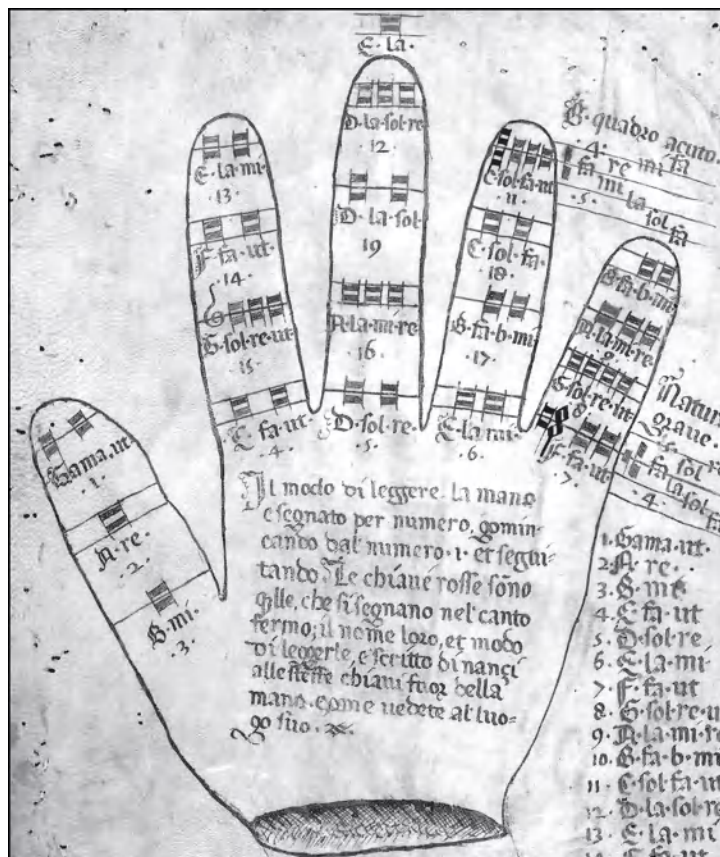 E · la ·
D · la · sol · re
12
E · la · mi ·
· 13 ·
D · la · sol
19
F · fa · ut
· 14 ·
G · sol · re · ut
15
A · la · mi · re
· 16 ·
C · fa · ut
· 4 ·
D · sol · re ·
· 5 ·
C · sol · fa · ut
11
C · sol · fa ·
· 18 ·
B · fa · b · mi
· 17 ·
E · la · mi ·
· 6 ·
B · fa · b · mi
A · la · mi · re
· 9 ·
G · sol · re · ut
· 8 ·
F · fa · ut
· 7 ·
Gama · ut
· 1 ·
A · re ·
· 2 ·
B · mi ·
· 3 ·
B · quadro acuto
· 4 ·
fa re mi fa
mi la
sol
fa
· 5 ·
Natur
graue ·
fa sol
la sol
fa
· 4 ·
Il modo di leggere la mano
e segnato per numero, comin-
cando dal numero · 1 · et segui-
tando Le chiaue rosse sono
qlle, che si segnano nel canto
fermo; il nome loro, et modo
di leggerle, e scritto di nançi
alle stesse chiaui fuor della
mano · come uedete al luo-
go suo ·
1 · Gama · ut ·
2 · A · re ·
3 · B · mi ·
4 · C · fa · ut
5 · D · sol · re
6 · E · la · mi
7 · F · fa · ut
8 · G · sol · re · u
9 · A · la · mi · re
10 · B · fa · b · mi
11 · C · sol · fa · ut
12 · D · la · sol · re
13 · E · la · mi